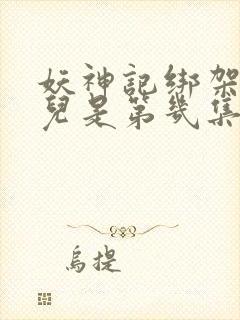 妖神記綁架
兒是第幾集
烏提